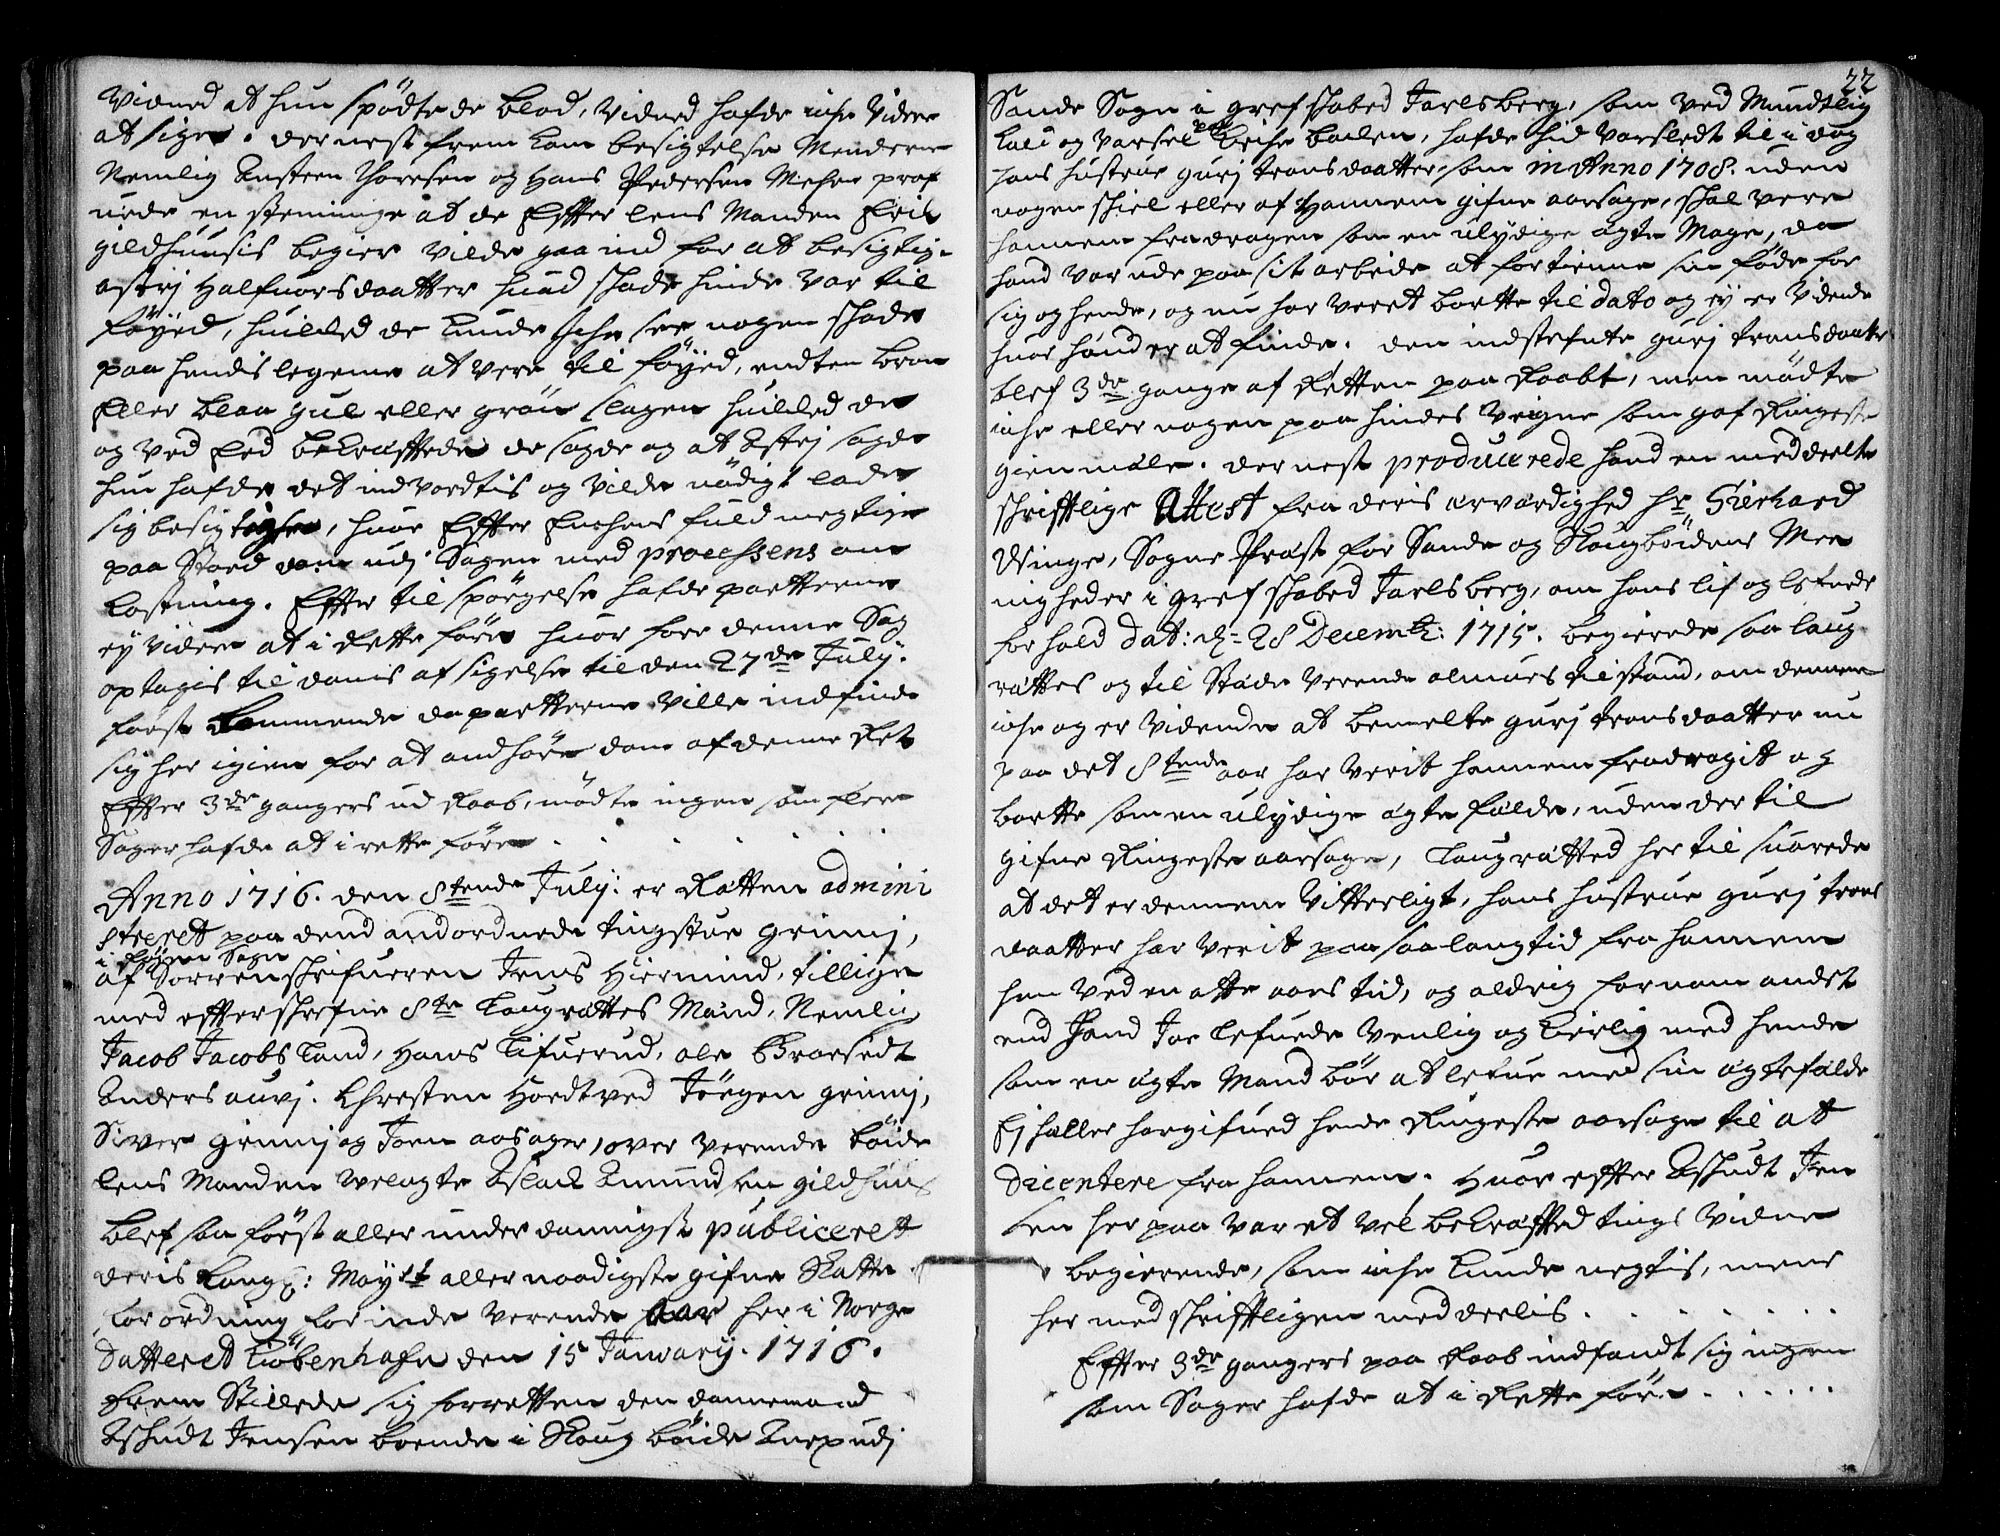 Vidned at hun spödte de blod, vidned hafde iche videre
at sige. dernest frem kom besigtelse Menderne
Nemlig Ansteen Thoresen og Hans Pedersen Mehen
uede en stemninge at de Effter lens Manden Erik
gildhuusis begier vilde gaa ind for at besigtige
astrj Halfuorsdaatter huad skade hinde var til
föyed, huilked de kunde iche see nogen skade
paa hendis legeme at vere til föyed, endten brun
Eller blaa gul eller grön slagen huilked de
og ved Eed bekræfftede de sagde og at Astrj sagde
hun hafde det indvordtis og vilde nödigt lade
sig besigtighe, huor Effter fuldmegtige
paa Stoed dom udj Sagen med processens om
kostning. Effter tilspörgelse hafde partterne
ey videre at i Rette före huor fore denne Sag
optagis til domis afsigelse til den 27de July
först kommende da partterne ville indfinde
sig her igien for at andhöre dom af denne Ret
Effter 3de gangers ud Raab, mödte ingen som flere
Sager hafde at i rette före . . . . . .
Anno 1716. den 8tende July: er Rætten admini
streret paa dend andordnede tingstue Grimj,
i Röyne Sogn
af Sorrenskrifueren Jens Hiermind, tillige
med effterskrefne 8te Laugrættes Mænd, Nemlig
Jacob Jacobs Land, Hans Lifuerud, ole Braaset
Anders aurj. Chresten Hoedtved Jörgen grimj,
Siver Grimj og Joen aasager, over verende böide
lens Manden Velagte Aslack Amundsen gildhuus
blef saa först aller underdannigst publiceret
deris Kongl: Mayst aller naadigste gifne Skatte
forordning for inde verende aar her i Norge
datteret Kiöbenhafn den 15 January. 1716.
frem Stillede sig for retten den dannemand
Ashudt Jensen boende i Skoug böide Anex udj
22
Sande Sogn i grefskabed Jarlsberg, som ved Mundtlig
kald og varsel paa Kirche backen, hafde hid varsledt til i dag
hans hustrue gurj tronsdaatter som in Anno 1708. uden
nogen skiel eller af Hannem gifne aarsage, skal vere
hannem fradragen som en ulydige ægte Mage, da
hand var ude paa sit arbeide at fortienne sin föde for
sig og hende, og nu har veret bortte til dato og ey er vidende
huor hand er at finde. den indstefnte gurj tronsdaatter
blef 3de gange af Retten paa Raabt, men mödte
iche eller nogen paa hindes veigne som gaf Ringeste
gienmæle. dernest producerede hand en meddeelte
skrifftlige Attest fra deris ærværdighed Hr. Gierhard
Winge, Sogne Præst for Sande og Skougböidens Me
nigheder i grefskabed Jarlsberg, om hans lif og lefnede
forhold dat: d: 28 Decembr: 1715. begierede saa Laug
rættes og til Stæde verende almues tilstand, om dennem
iche og er vidende at bemelte gurj tronsdaatter nu
paa det 8tende aar har verit hannem fradragit og
bortte som en ulydige ægte fælde, uden der til
gifne Ringeste aarsage, Laugrætted her til suarede
at det er dennem vitterligt, hans hustrue gurj trons
daatter har verit paa saa lang tid fra hannem
hen ved en otte aars tid, og aldrig fornam andet
end hand Joe lefuede venlig og kierlig med hende
som en ægte Mand bör at lefue med sin ægtefælde
Ej heller har gifued hende Ringeste aarsage til at
dicentere fra hannem. Huor effter Ashudt Jen
sen her paa var et vel bekræffted tings vidne
begierende, som iche kunde negtis, mens
her med skrifftligen meddeelis . . . . . .
Effter 3de gangers paa Raab indfandt sig ingen
som Sager hafde at i Rette före . . . . . .